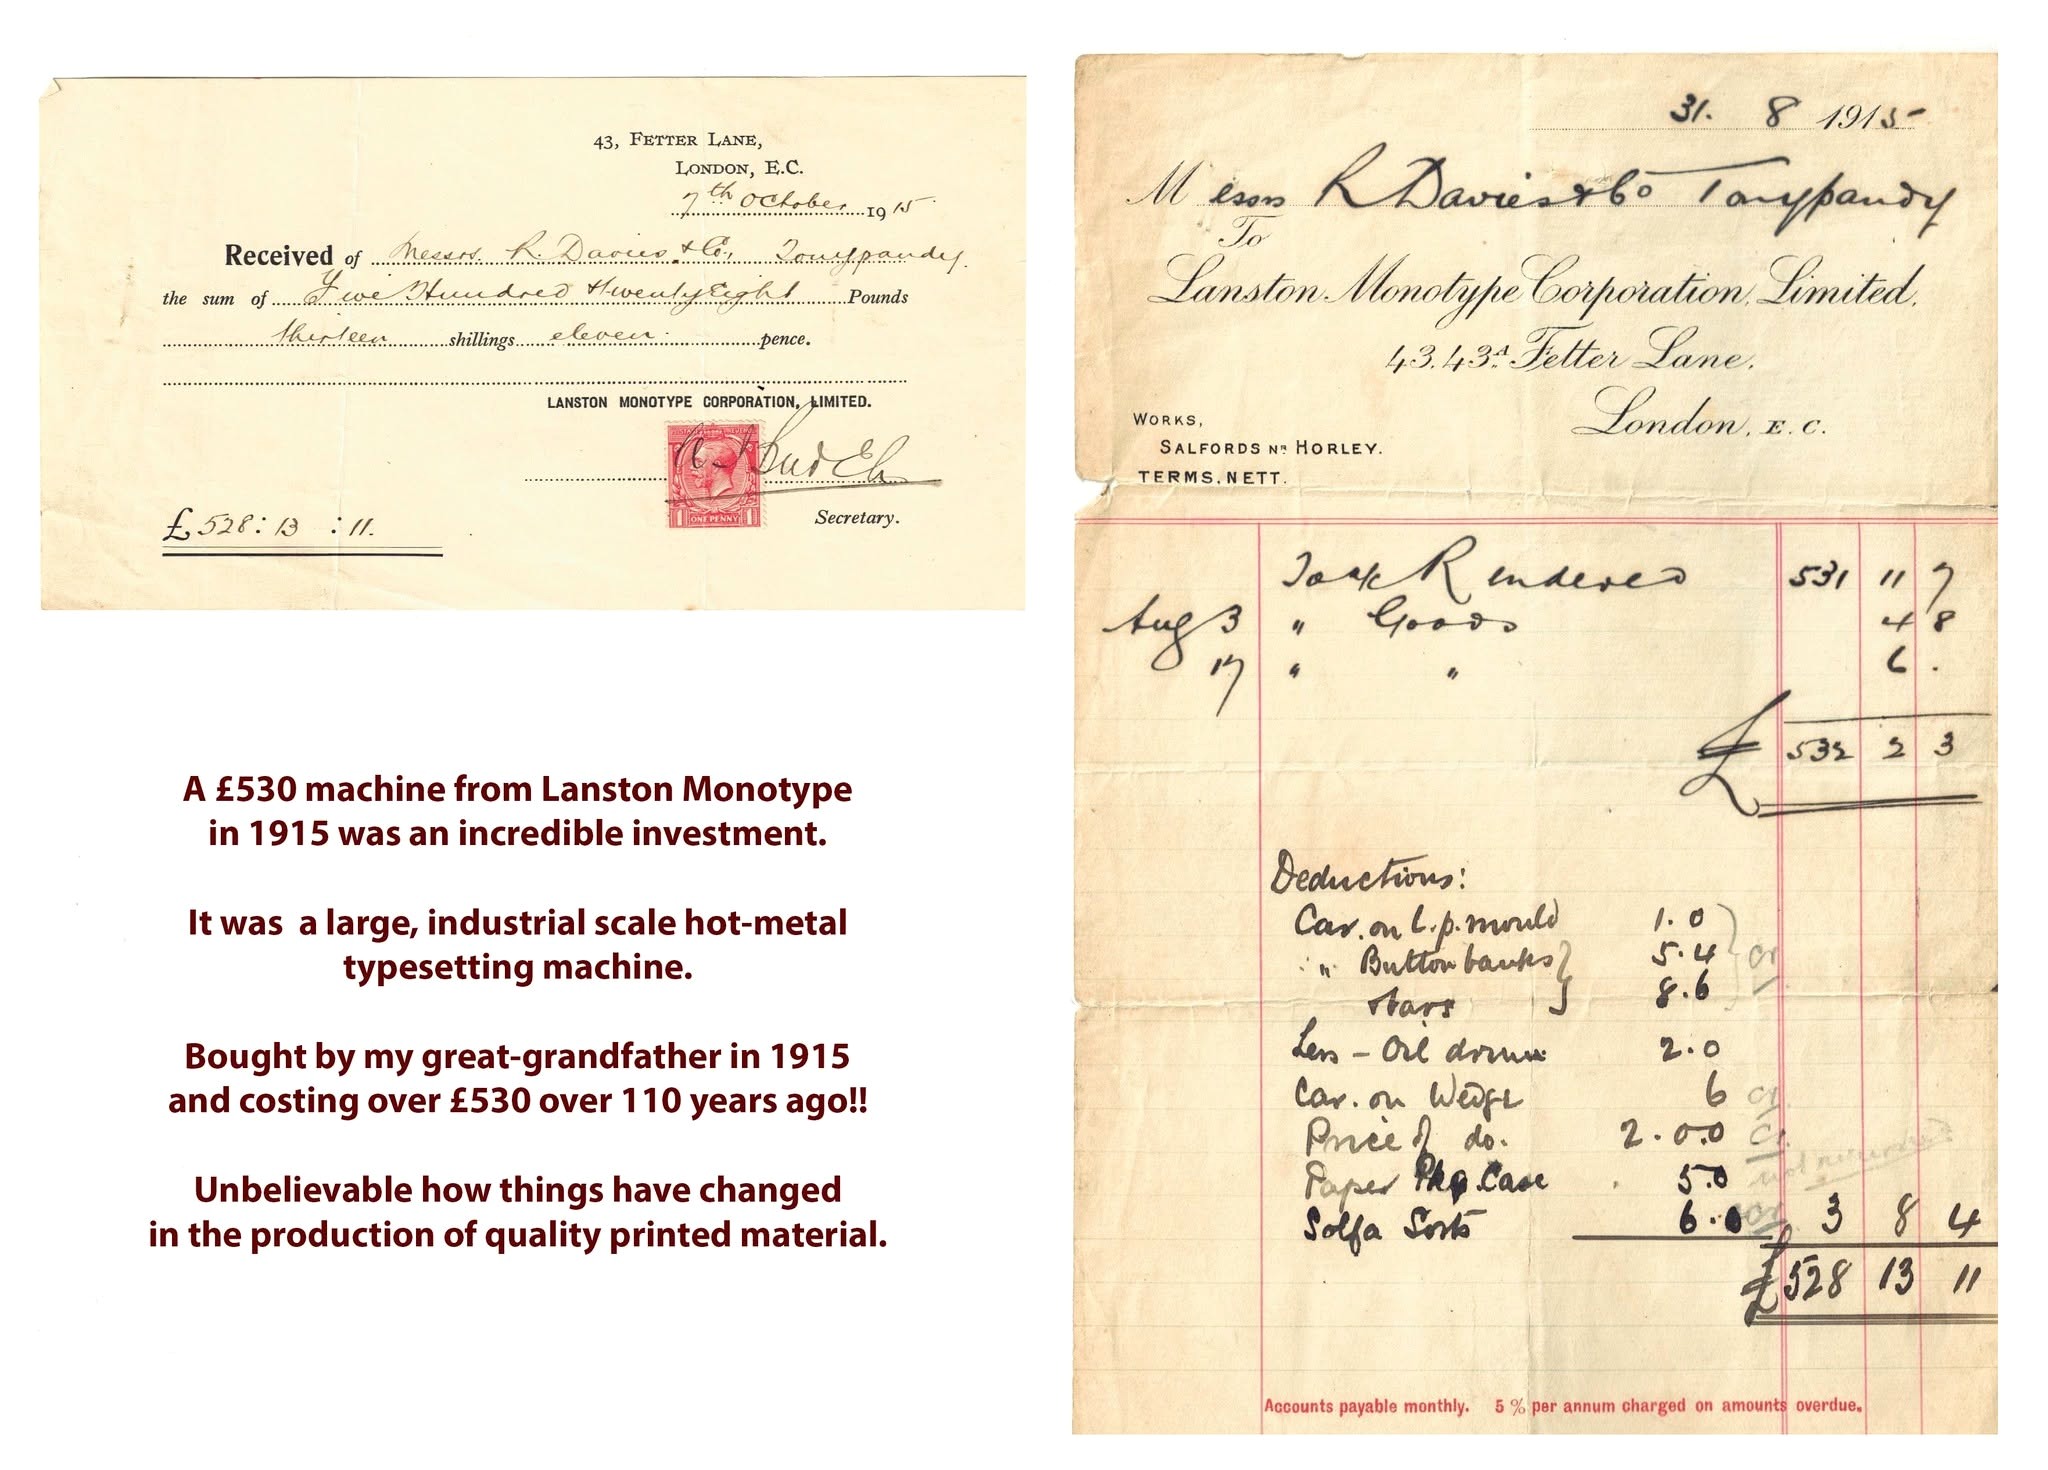 43, FETTER LANE,
LONDON, E.C.
7th October 1915
Received of Messrs. R. Davies & Co., Tonypandy.
the sum of Five Hundred & twenty Eight Pounds
thirteen shillings eleven pence.
LANSTON MONOTYPE CORPORATION, LIMITED.
ONE PENNY
Secretary.
£528: 13 : 11.
A £530 machine from Lanston Monotype
in 1915 was an incredible investment.
It was a large, industrial scale hot-metal
typesetting machine.
Bought by my great-grandfather in 1915
and costing over £530 over 110 years ago!!
Unbelievable how things have changed
in the production of quality printed material.
31. 8 1915
Messrs R Davies & Co Tonypandy
To
Lanston Monotype Corporation, Limited,
43.43A. Fetter Lane,
London, E.C.
WORKS,
SALFORDS NR HORLEY.
TERMS, NETT.
To a/c Rendered 531 11 7
Aug 3 " Goods 4 8
17 " " 6 .
£ 532 2 3
Deductions:
Car. on l.p. mould 1.0
" Button banks 5.4 Cr
8.6
Less - Oil drum 2.0
Car. on Wedge 6 Cr
Price of do. 2.0.0 Cr
not returned
Paper Pkg. Case 5.0
Solfa Sorts 6.0 Cr 3 8 4
£528 13 11
Accounts payable monthly. 5% per annum charged on amounts overdue.